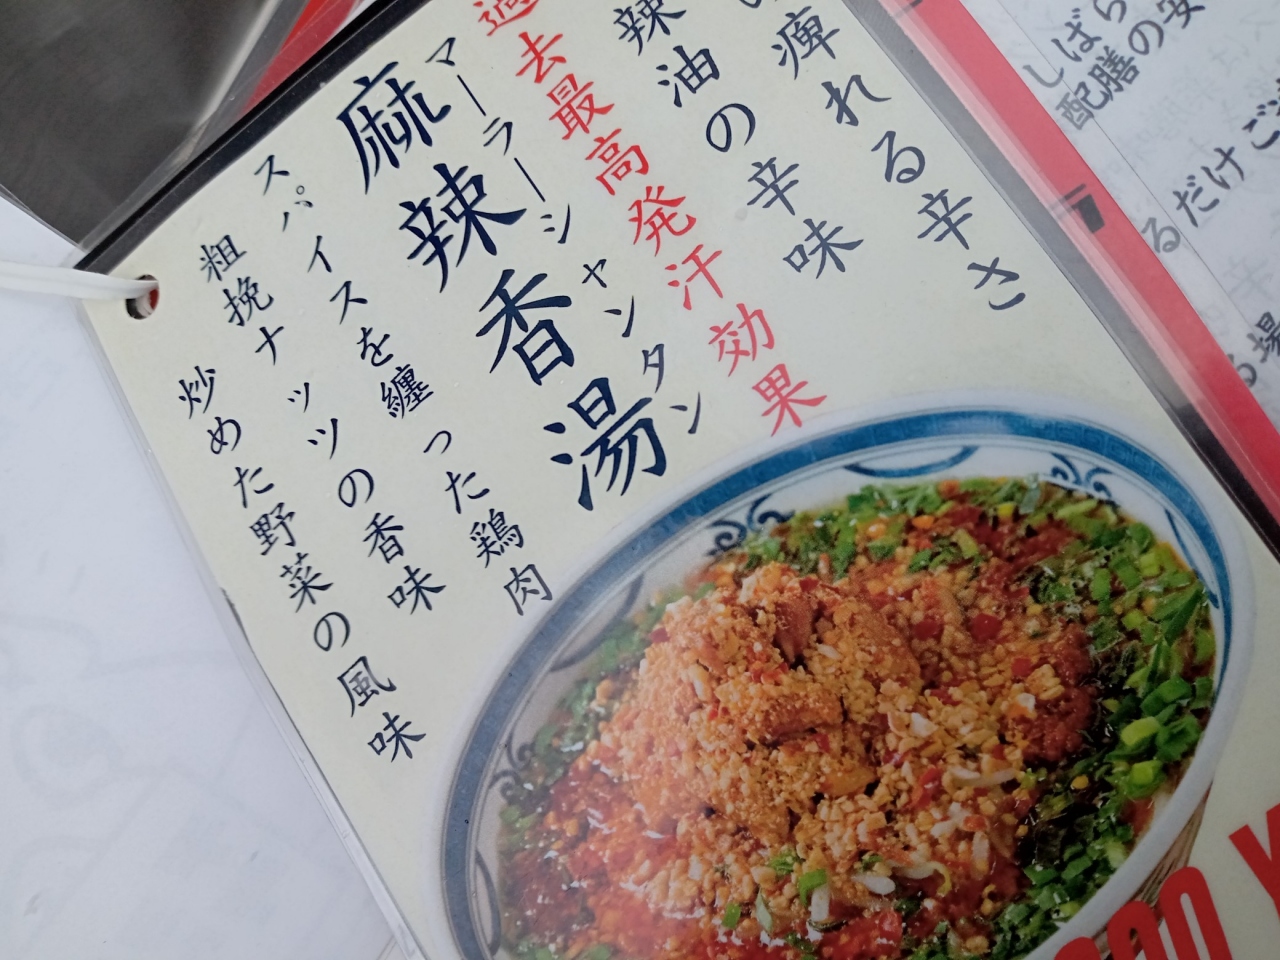 痺れる辛さ
辣油の辛味
過去最高発汗効果
マーラーシャンタン
麻辣香湯
スパイスを纏った鶏肉
粗挽ナッツの香味
炒めた野菜の風味
しばら
配膳の安
るだけご
る場